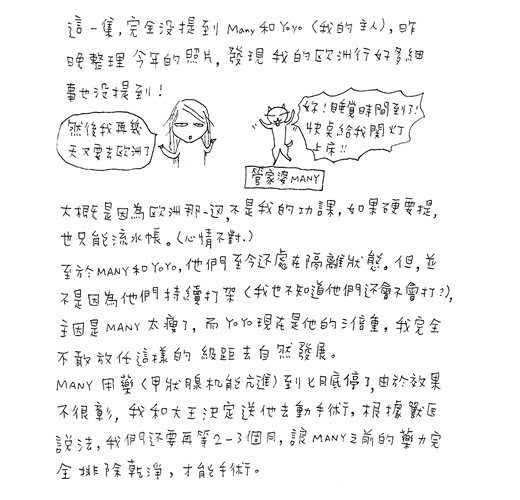 這一集,完全沒提到 Many 和 YoYo (我的主人),昨
晚整理 今年的照片,發現 我的歐洲行好多細
事也沒提到!
然後我再幾
天又要去歐洲了
妳!睡覺時間到了!
快点給我関灯
上床!!
管家婆 MANY
大概是因為歐洲那一迎,不是我的功課,如果硬要提,
也只能流水帳。(心情不對.)
至於MANY和YOYO,他們至今还處在隔離狀態。但,並
不是因為他們持續打架(我也不知道他們还會不會打?),
主因是 MANY 太瘦了,而 YOYO 現在是他的三倍重,我完全
不敢放任這樣的 級距去自然發展。
MANY 用藥 (甲狀腺机能亢進) 到七月底停了,由於效果
不很彰,我和大王決定送他去動手術,根據獸医
說法,我們还要再等2-3個月,讓 MANY之前的藥力完
全 排除乾淨,才能手術。